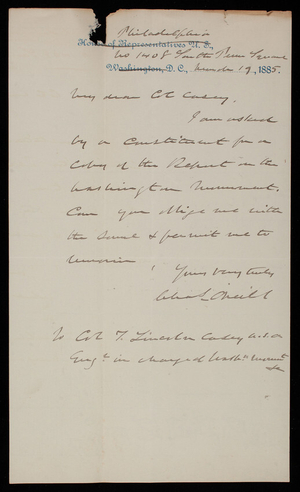 Philadelphia
House of Representatives U. S.,
No 1408 South Penn Square
Washington, D. C., March 19, 1885.
My dear Col Casey.
I am asked
by a Constituent for a
Copy of the Report on the
Washington Monument.
Can you oblige me with
the same & permit me to
remain
Yours very truly
Chas O'Neill
To Col T. Lincoln Casey U.S.A
Engr in charge of Wash. Monument